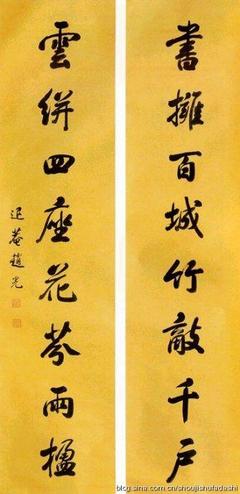 書擁百城竹敵千戶
雲絣四座花芬兩楹
退菴趙光
blog.sina.com.cn/shoujishufadashi